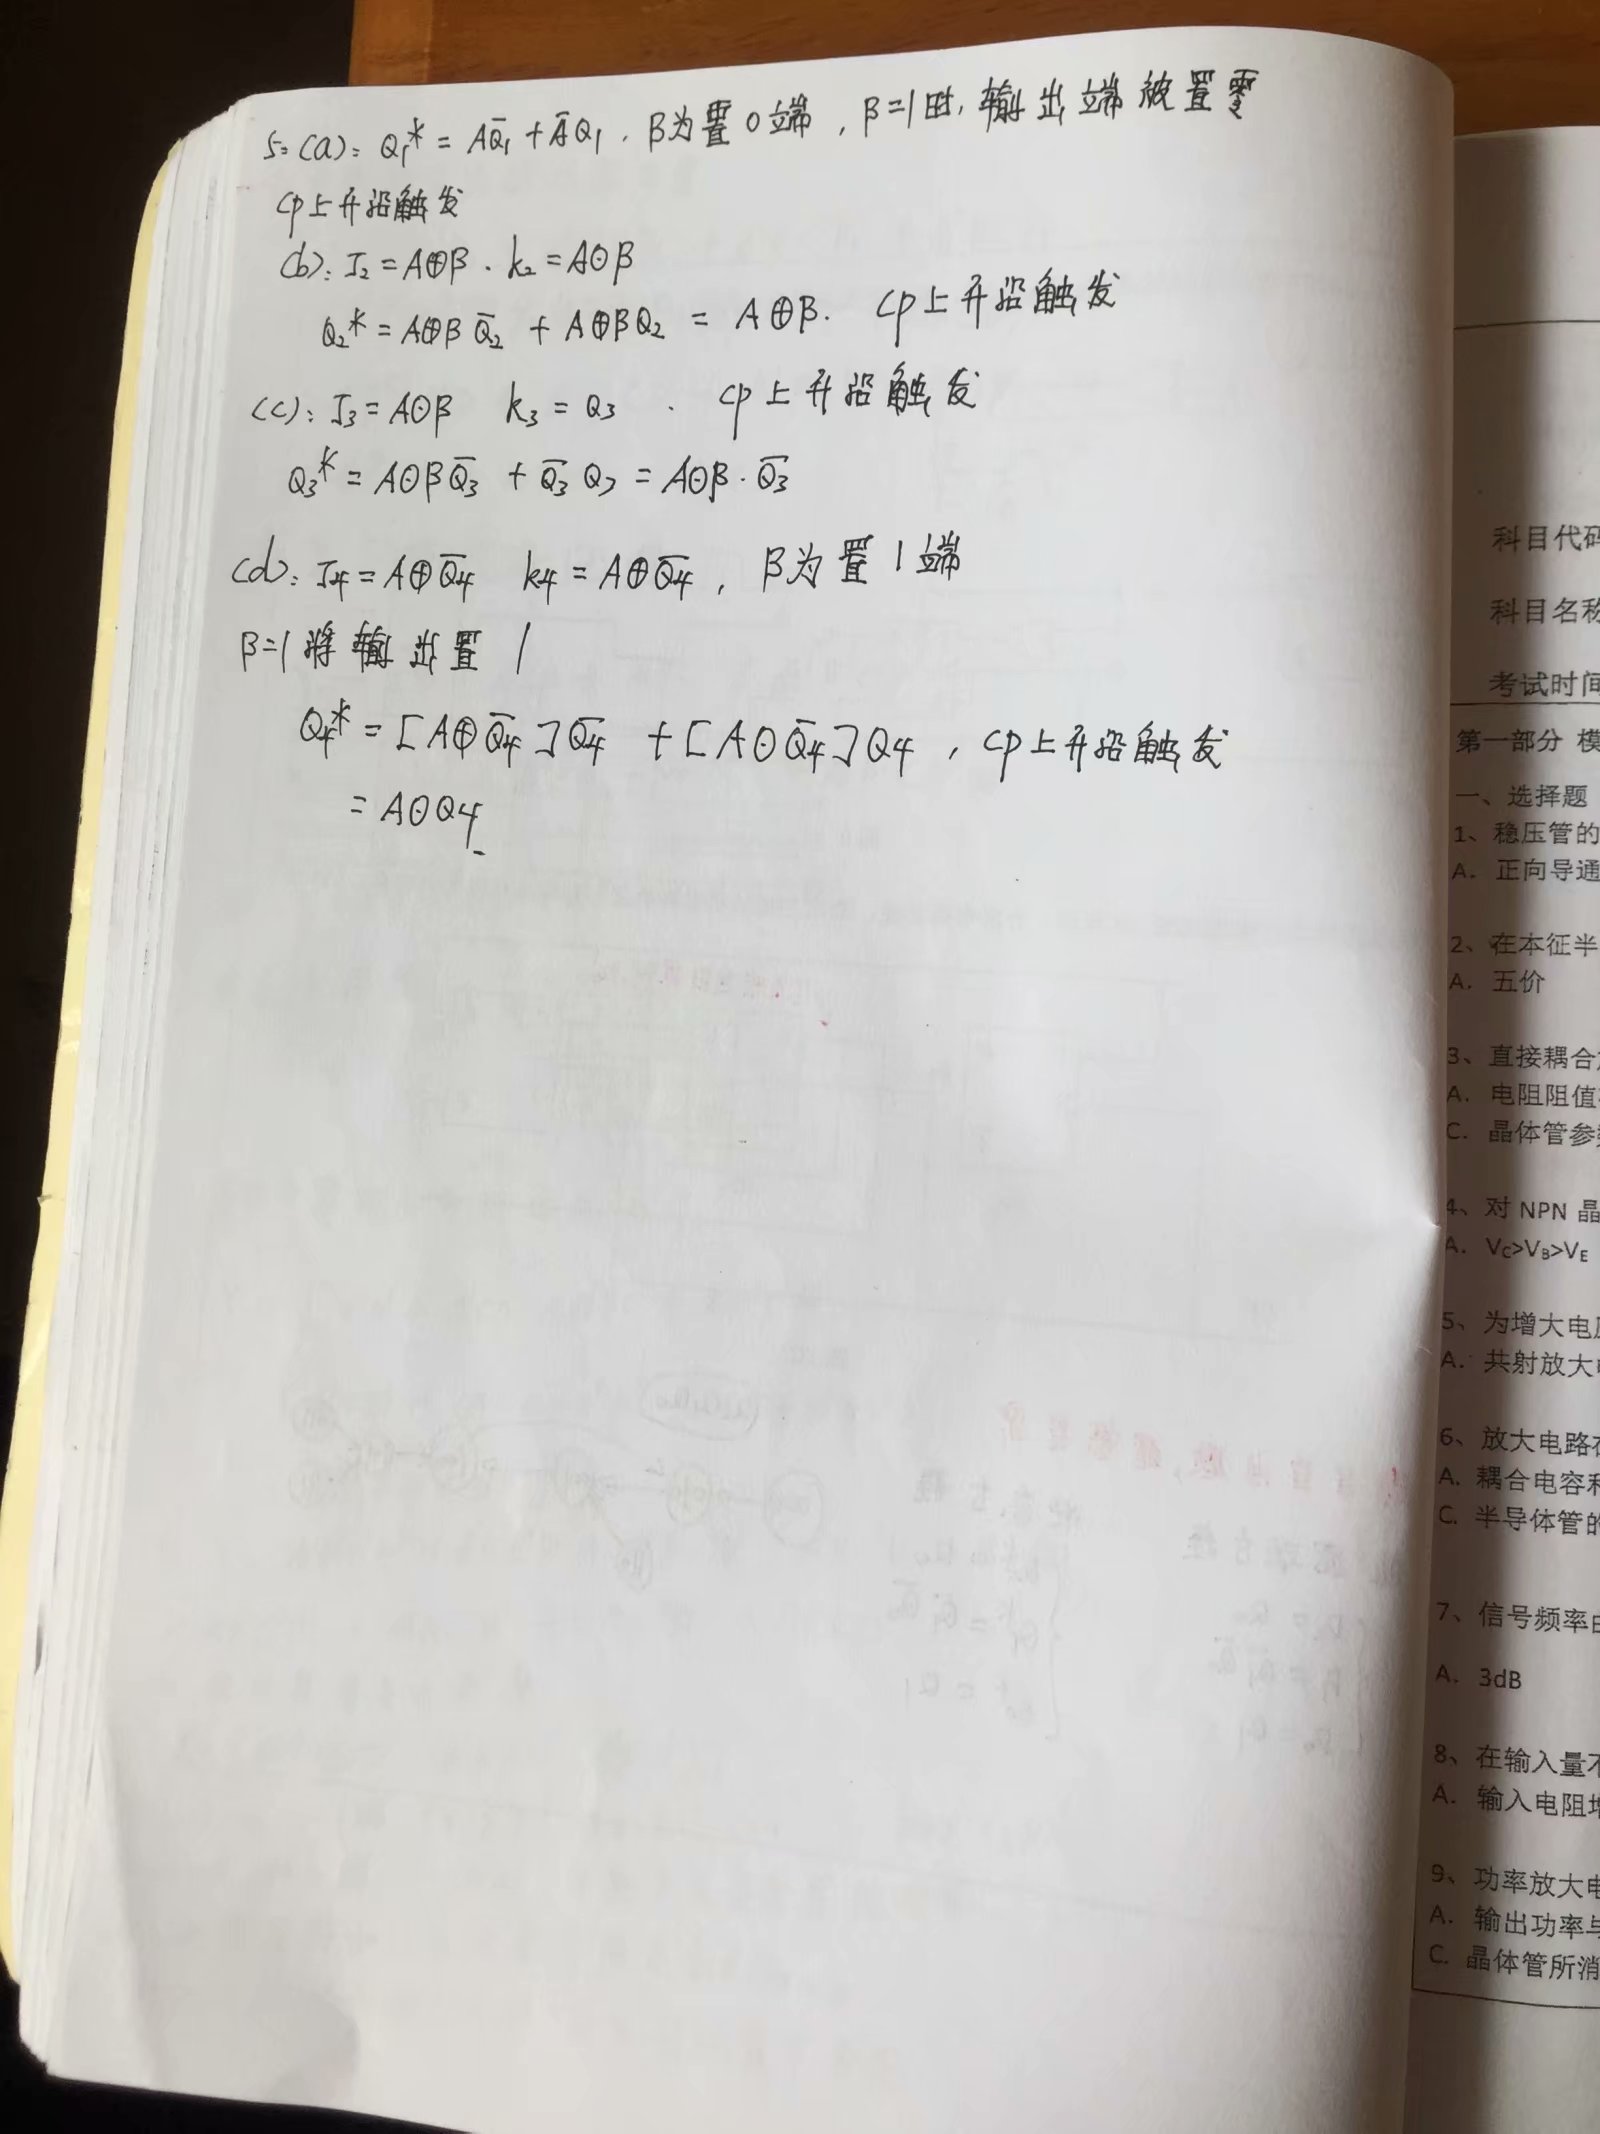 5=(a): Q₁* = AQ̄₁ + ĀQ₁ . B为置0端 , B=1时, 输出端被置零
CP上升沿触发
(b): J₂ = A⊕B . k₂ = A⊙B
Q₂* = A⊕B Q̄₂ + A⊕BQ₂ = A⊕B. CP上升沿触发
(c): J₃ = A⊙B k₃ = Q₃ . CP上升沿触发
Q₃* = A⊙BQ̄₃ + Q̄₃ Q₃ = A⊙B·Q̄₃
(d): J₄ = A⊕Q̄₄ k₄ = A⊕Q̄₄ , B为置1端
B=1将输出置1
Q₄* = [A⊕Q̄₄]Q̄₄ + [A⊙Q̄₄]Q₄ , CP上升沿触发
= A⊙Q₄
科目代码
科目名称
考试时间
第一部分 模
一、选择题
1、稳压管的
A. 正向导通
2、在本征半
A. 五价
3、直接耦合
A. 电阻阻值
C. 晶体管参
4、对 NPN 晶
A. VC>VB>VE
5、为增大电
A. 共射放大
6、放大电路在
A. 耦合电容和
C. 半导体管的
7、信号频率
A. 3dB
8、在输入量不
A. 输入电阻增
9、功率放大电
A. 输出功率与
C. 晶体管所消